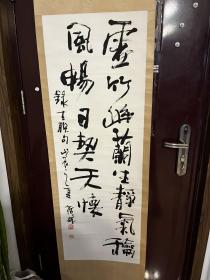 虛竹幽蘭生靜氣
風暢日契天懷
錄古聯句